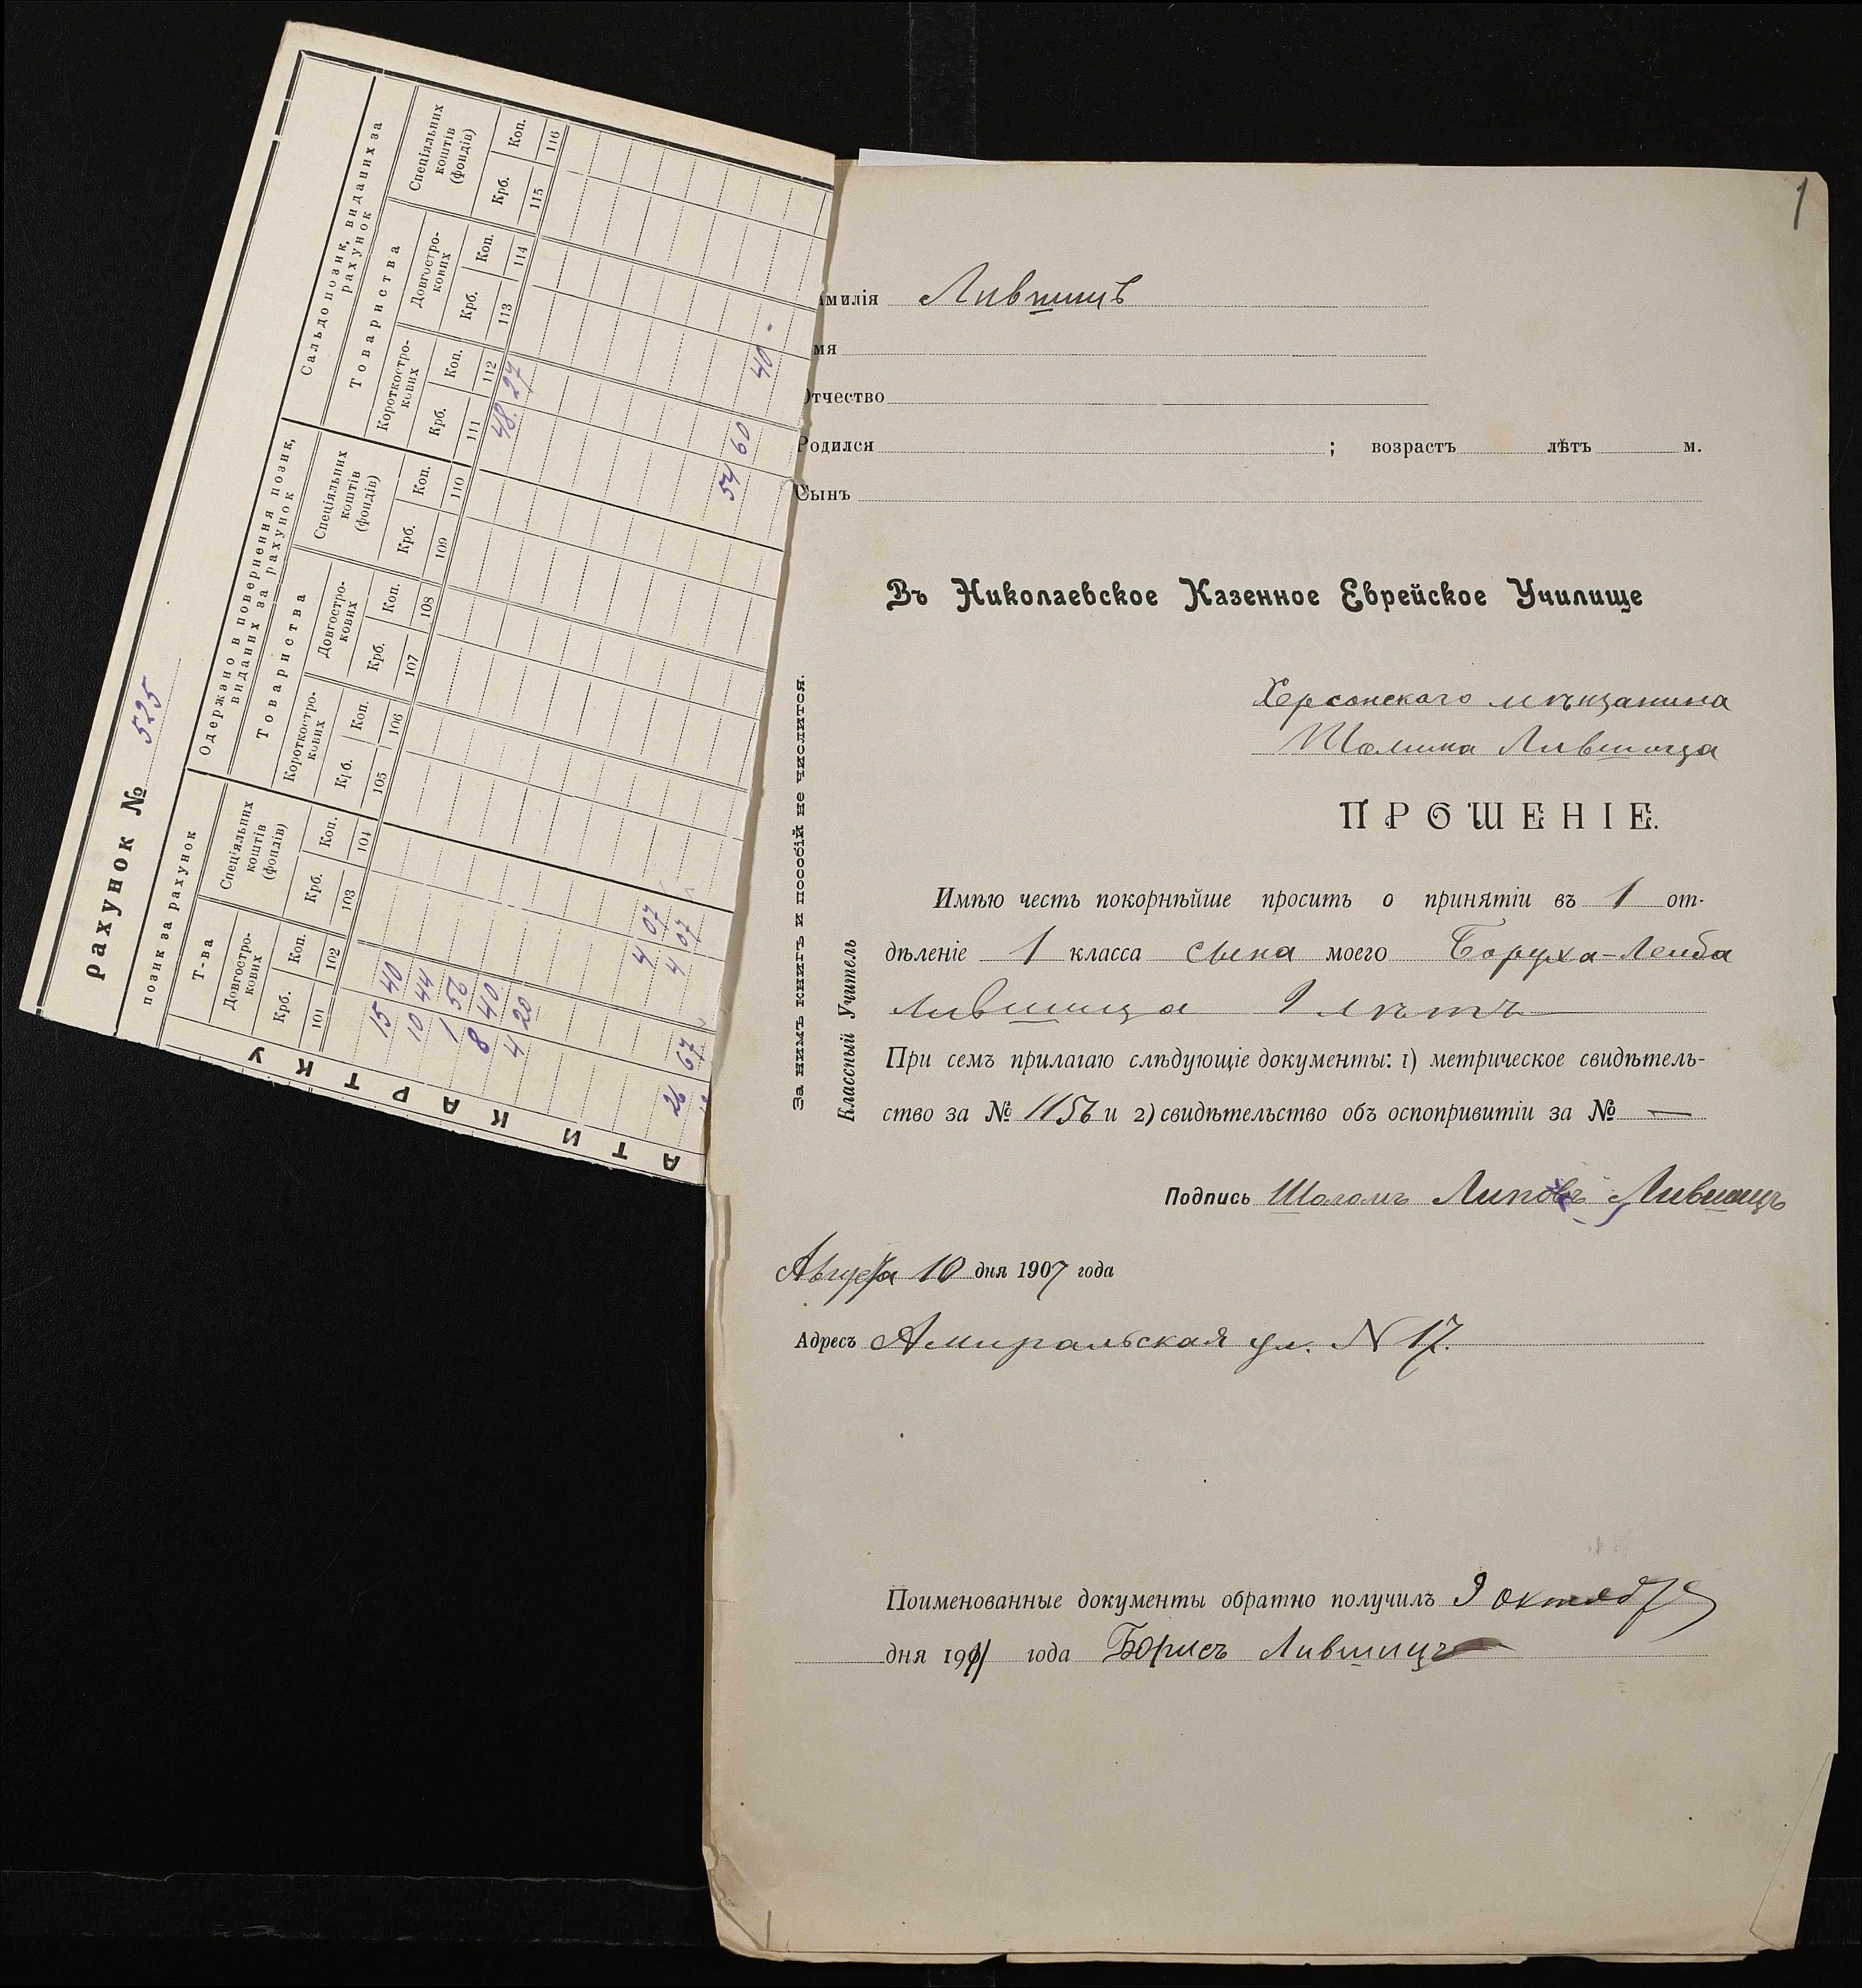 рахунок № 525
позик за рахунок
Одержано в повернення позик, виданих за рахунок
Сальдо позик, виданих за рахунок
Т-ва
Спеціяльних коштів (фондів)
Товариства
Спеціяльних коштів (фондів)
Товариства
Спеціяльних коштів (фондів)
Довгостро-кових
Короткостро-кових
Довгостро-кових
Короткостро-кових
Довгостро-кових
Крб. Коп. Крб. Коп. Крб. Коп. Крб. Коп. Крб. Коп. Крб. Коп. Крб. Коп. Крб. Коп.
101 102 103 104 105 106 107 108 109 110 111 112 113 114 115 116
48. 27
15 40
10 44
1 56
8 40
4 20
4 07
54 60 40 -
26 67 4 07
АТИ КАРТКУ
1
амилія Лившицъ
мя
Отчество
Родился ; возрастъ лѣтъ м.
Сынъ
Въ Николаевское Казенное Еврейское Училище
Херсонскаго мѣщанина
Лившица
ПРОШЕНІЕ.
Имѣю честь покорнѣйше просить о принятіи въ 1 от-
дѣленіе 1 класса сына моего Боруха-Лейба
Лившица 9 лѣтъ
При семъ прилагаю слѣдующіе документы: 1) метрическое свидѣтель-
ство за № 1156 и 2) свидѣтельство объ оспопривитіи за № —
Подпись Шоломъ Липовъ Лившицъ
Августа 10 дня 1907 года
Адресъ Амиральская ул. N 17.
За нимъ книгъ и пособій не числится.
Классный Учитель
Поименованные документы обратно получилъ 9 октября
дня 1911 года Борисъ Лившицъ